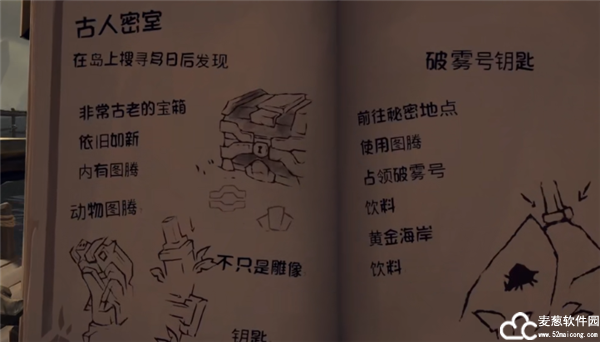 古人密室
在岛上搜寻多日后发现
非常古老的宝箱
依旧如新
内有图腾
动物图腾
不只是雕像
钥匙
破雾号钥匙
前往秘密地点
使用图腾
占领破雾号
饮料
黄金海岸
饮料
麦葱软件园
www.52maicong.com